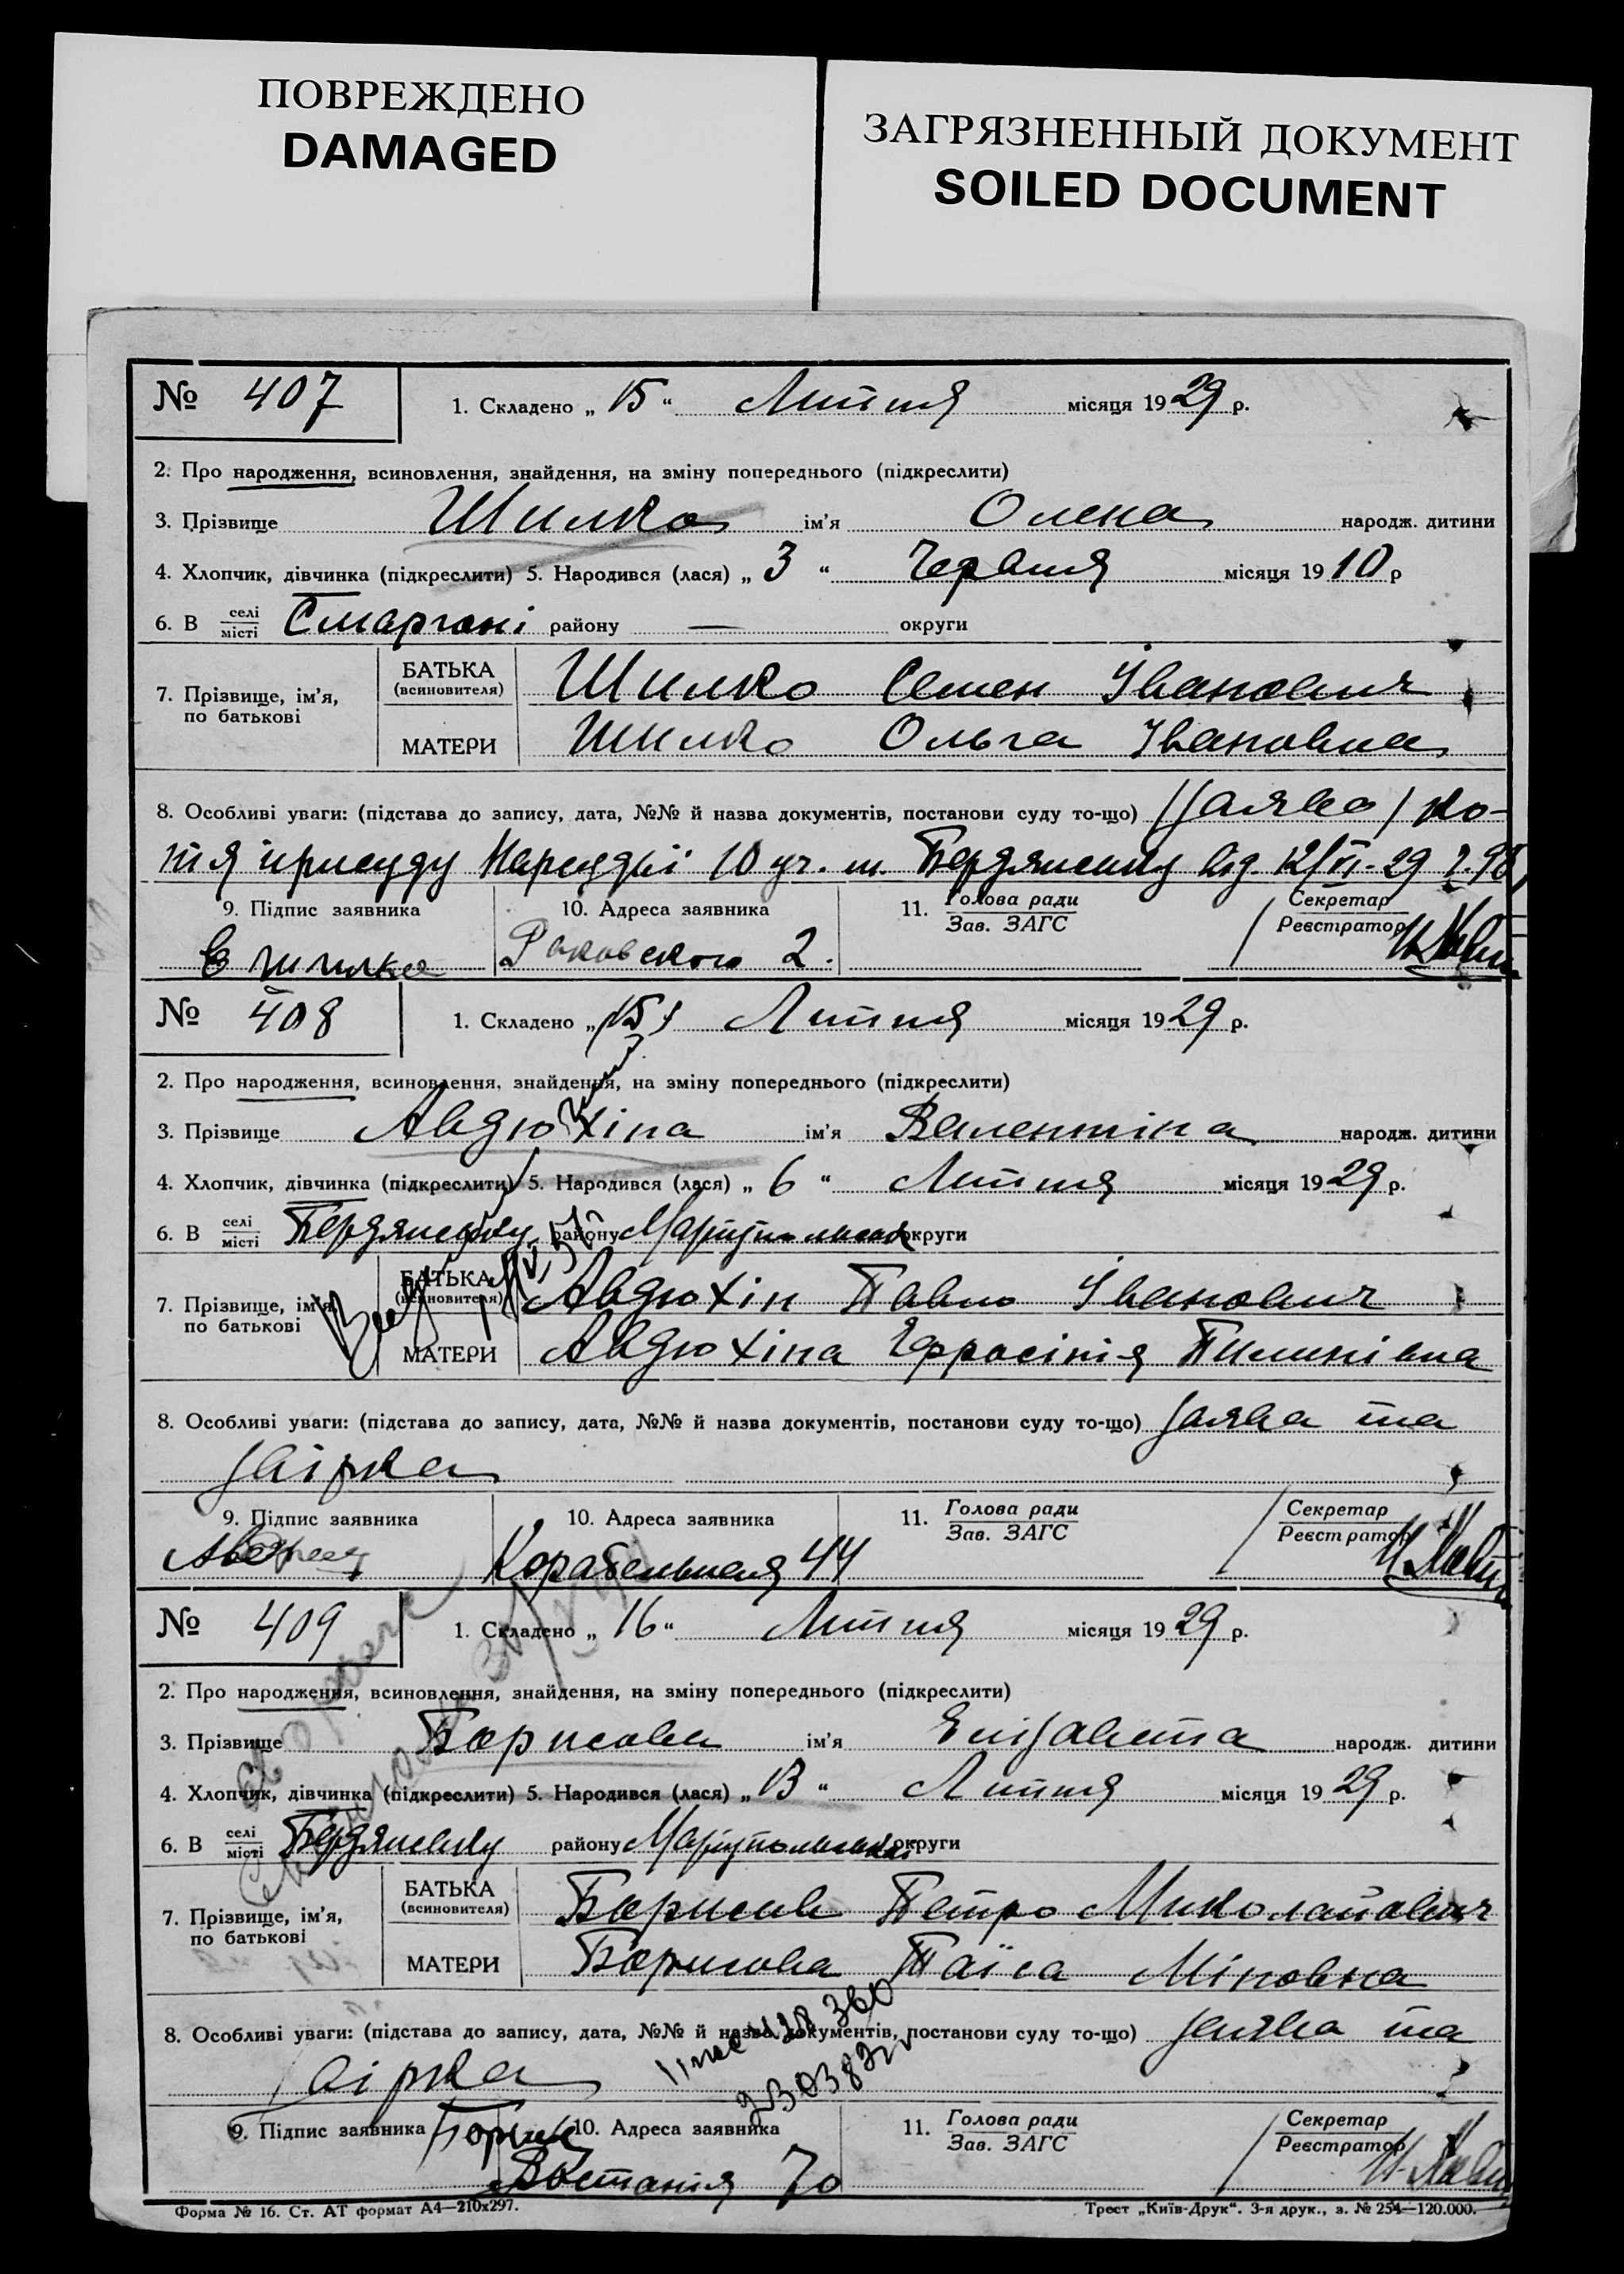 ПОВРЕЖДЕНО
DAMAGED
ЗАГРЯЗНЕННЫЙ ДОКУМЕНТ
SOILED DOCUMENT
№ 407
1. Складено „ 15 “ Липня місяця 1929 р.
2. Про народження, всиновлення, знайдення, на зміну попереднього (підкреслити)
3. Прізвище Шилко ім’я Олена народж. дитини
4. Хлопчик, дівчинка (підкреслити) 5. Народився (лася) „ 3 “ Червня місяця 1910 р
6. В селі місті Сморгоні району — округи
7. Прізвище, ім’я, по батькові
БАТЬКА (всиновителя) Шилко Семен Іванович
МАТЕРИ Шилко Ольга Івановна
8. Особливі уваги: (підстава до запису, дата, №№ й назва документів, постанови суду то-що) Заява, ко-
пія присуду Нарсудді 10 уч. м. Бердянську від 12/VI-29
9. Підпис заявника
10. Адреса заявника
11. Голова ради Зав. ЗАГС
Секретар Реєстратор
Шилко
Раковского 2.
№ 408
1. Складено „ 15 “ Липня місяця 1929 р.
2. Про народження, всиновлення, знайдення, на зміну попереднього (підкреслити)
3. Прізвище Авдюхіна ім’я Валентіна народж. дитини
4. Хлопчик, дівчинка (підкреслити) 5. Народився (лася) „ 6 “ Липня місяця 1929 р.
6. В селі місті Бердянську району Маріупольськ округи
7. Прізвище, ім’я, по батькові
БАТЬКА (всиновителя) Авдюхін Павло Іванович
МАТЕРИ Авдюхіна Єфросінія Пилипівна
8. Особливі уваги: (підстава до запису, дата, №№ й назва документів, постанови суду то-що) Заява та
Звірка
9. Підпис заявника
10. Адреса заявника
11. Голова ради Зав. ЗАГС
Секретар Реєстратор
Корабельная 44
№ 409
1. Складено „ 16 “ Липня місяця 1929 р.
2. Про народження, всиновлення, знайдення, на зміну попереднього (підкреслити)
3. Прізвище Борисова ім’я Єлізавета народж. дитини
4. Хлопчик, дівчинка (підкреслити) 5. Народився (лася) „ 13 “ Липня місяця 1929 р.
6. В селі місті Бердянську району Маріупольської округи
7. Прізвище, ім’я, по батькові
БАТЬКА (всиновителя) Борисов Петро Миколайович
МАТЕРИ Борисова Таїса Міновна
8. Особливі уваги: (підстава до запису, дата, №№ й назва документів, постанови суду то-що) Заява та
Звірка
9. Підпис заявника
10. Адреса заявника
11. Голова ради Зав. ЗАГС
Секретар Реєстратор
Востания 70
Форма № 16. Ст. АТ формат А4—210х297.
Трест „Київ-Друк“. 3-я друк., з. № 254—120.000.